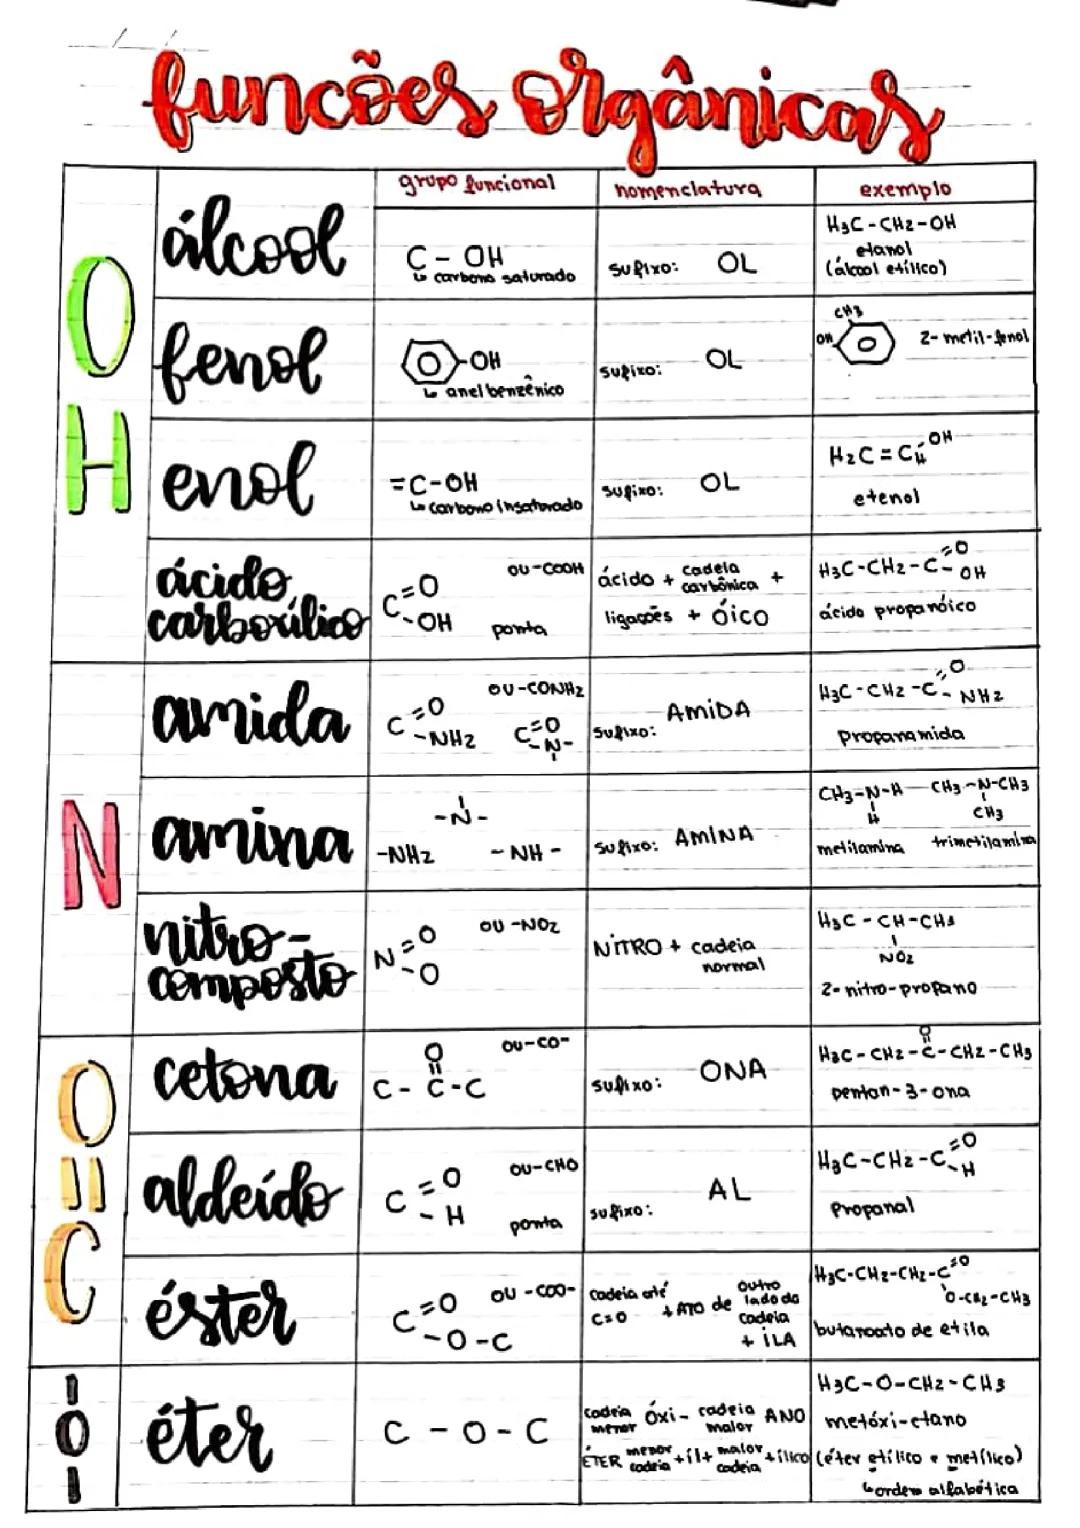 funcões orgânicas
grupo funcional nomenclatura exemplo
OH
álcool
C - OH
↳ carbono saturado
sufixo: OL
H3C-CH2-OH
etanol
(álcool etílico)
fenol
-OH
↳ anel benzênico
sufixo: OL
CH3
OH
2-metil-fenol
enol
=C-OH
↳ carbono insaturado
sufixo: OL
H2C=C-OH
H
etenol
ácido
carboxílico
C=O
C-OH
ou-COOH
ponta
ácido + cadeia carbônica +
ligações + óico
H3C-CH2-C=O
-OH
ácido propanóico
N
amida
C=O
-NH2
ou-CONH2
C=O
-N-
sufixo: AMIDA
H3C-CH2-C=O
-NH2
propanamida
amina
-N-
-NH2 -NH-
sufixo: AMINA
CH3-N-H
H
metilamina
CH3-N-CH3
CH3
trimetilamina
nitro-
composto
N=O
-O
ou -NO2
NITRO + cadeia
normal
H3C-CH-CH3
NO2
2-nitro-propano
O=C
cetona
O
C-C-C
ou-CO-
sufixo: ONA
O
H3C-CH2-C-CH2-CH3
pentan-3-ona
aldeído
C=O
-H
ou-CHO
ponta
sufixo: AL
H3C-CH2-C=O
-H
propanal
éster
C=O
-O-C
ou-COO-
cadeia até
C=O
+ ATO de
outro
lado da
cadeia
+ ILA
H3C-CH2-CH2-C=O
O-CH2-CH3
butanoato de etila
-O-
éter
C - O - C
cadeia
menor
óxi-
cadeia
maior
ANO
ÉTER
menor
cadeia
+il+
maior
cadeia
+ílico
H3C-O-CH2-CH3
metóxi-etano
(éter etílico e metílico)
↳ordem alfabética